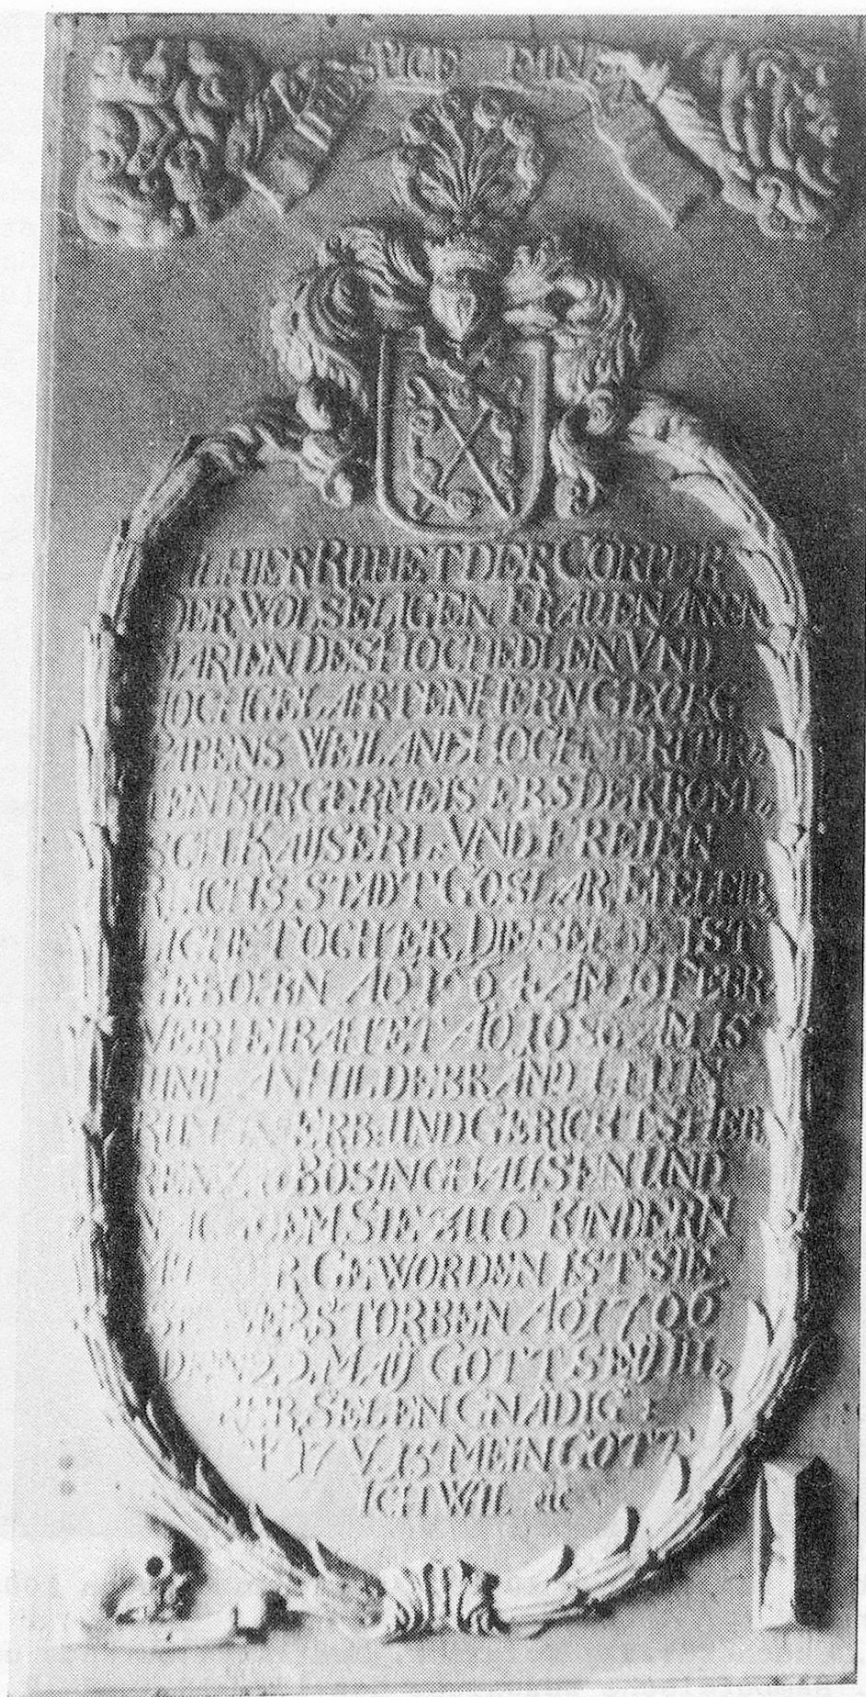 RESPICE FINEM
ALHIER RUHET DER CÖRPUR
DER WOLSELIGEN FRAUEN ANNEN
MARIEN DES HOCHEDLEN VND
HOCHGELARTEN HERN GEORG
WEILAND HOCH
BURGERMEISERS DER ROMI„
SCH KAUSERL VND FREIEN
REICHS STADT GOSLAR EHELEIB„
LICHE TOCHER DIESELBE IST
GEBOERN AO AM
VERHEIRAHTET AO
AN HILDEBRAND
ERB UND GERICHTS HER„
REN ZU BÖSINGHAUSEN UND
SIE ZU 10 KINDERN
GEWORDEN IST SIE
VERSTORBEN AO 1700
DEN 29. MAIJ GOTT SEÿ IHR„
ER SELEN GNÄDIG
17 V. 15 MEIN GOTT
ICH WIL etc